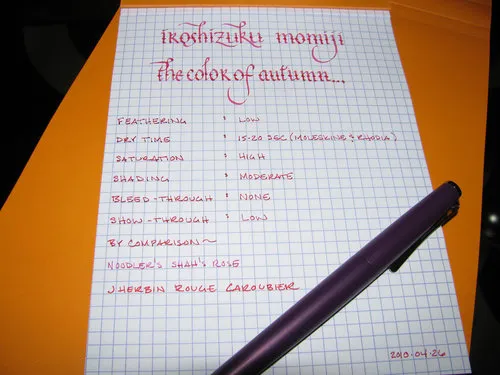 iroshizuku momiji
the color of autumn...
FEATHERING : LOW
DRY TIME : 15-20 SEC (MOLESKINE & RHODIA)
SATURATION : HIGH
SHADING : MODERATE
BLEED-THROUGH : NONE
SHOW-THROUGH : LOW
BY COMPARISON~
NOODLER'S SHAH'S ROSE
J HERBIN ROUGE CAROUBIER
2010.04.26